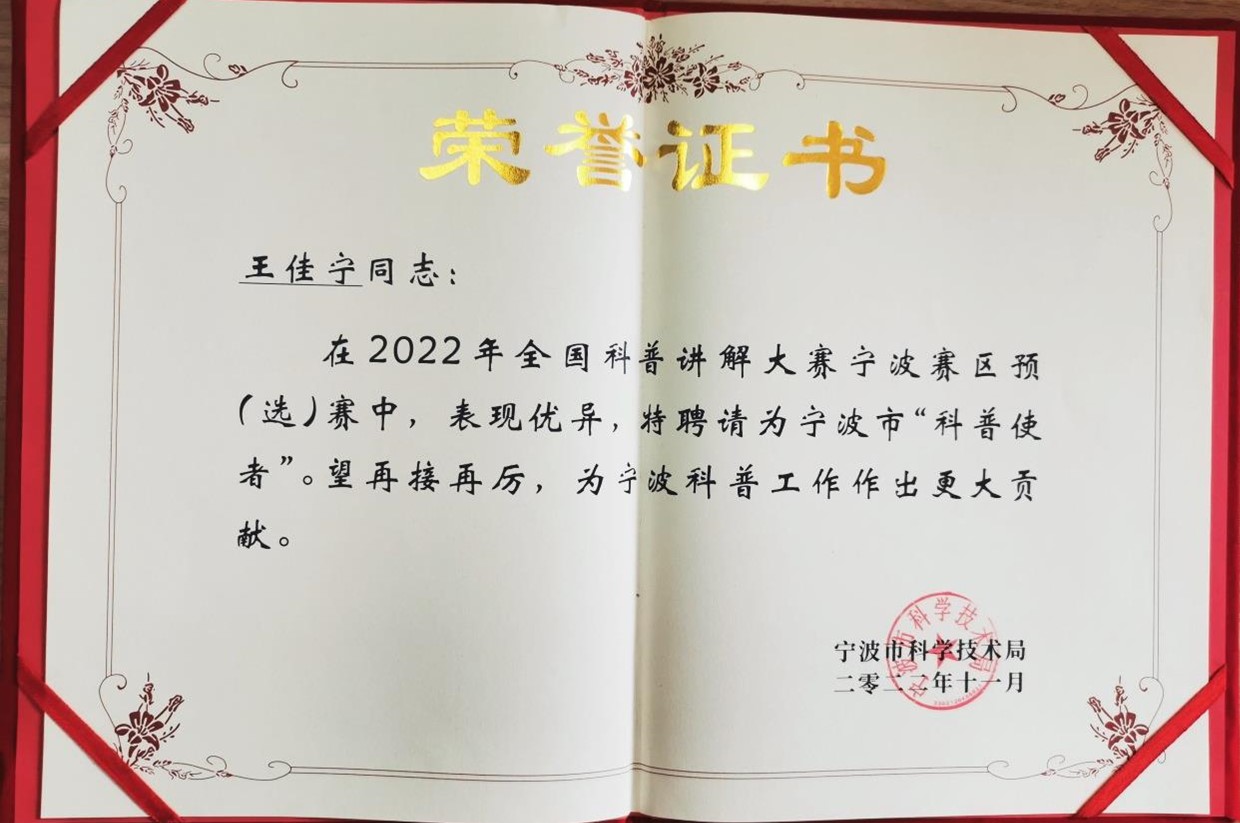 荣誉证书
王佳宁同志：
在2022年全国科普讲解大赛宁波赛区预
（选）赛中，表现优异，特聘请为宁波市“科普使
者”。望再接再厉，为宁波科普工作作出更大贡
献。
宁波市科学技术局
二零二二年十一月
宁波市科学技术局